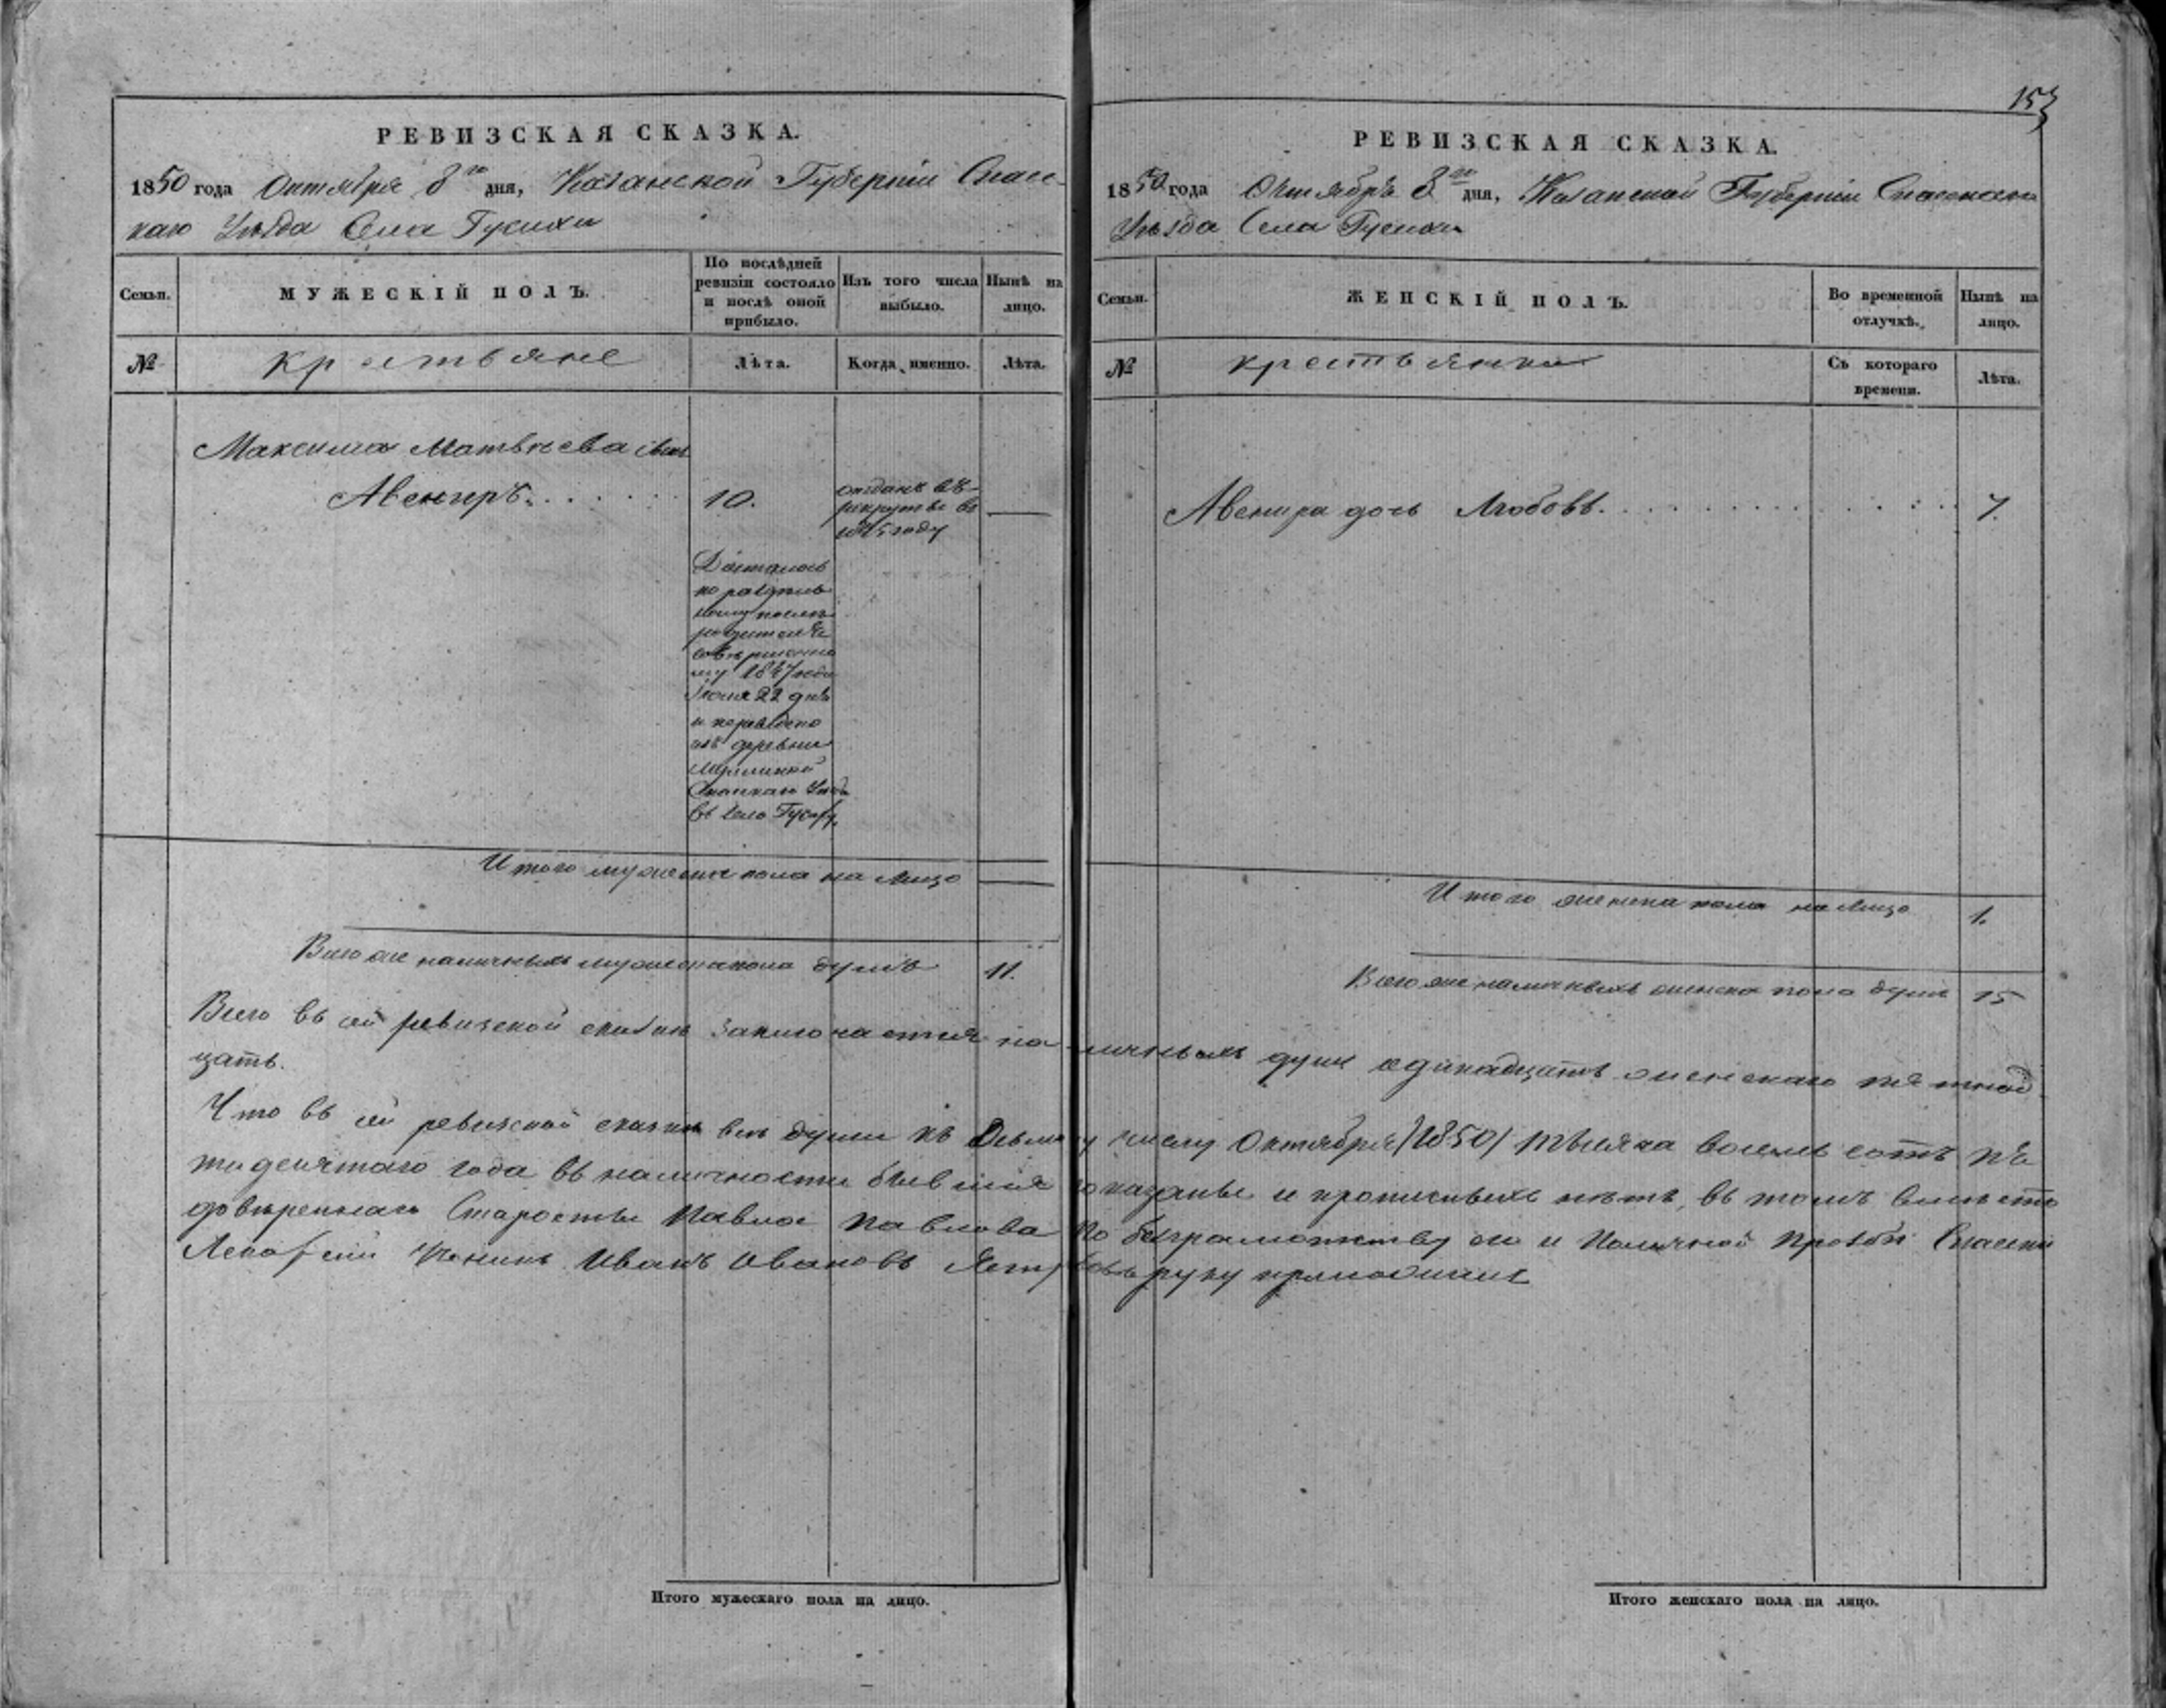 153
РЕВИЗСКАЯ СКАЗКА.
1850 года Октября 8го дня, Казанской Губерніи Спас-
каго Уѣзда Села Гусихи
Семьи.
МУЖЕСКІЙ ПОЛЪ.
По послѣдней ревизіи состояло и послѣ оной прибыло.
Изъ того числа выбыло.
Нынѣ на лицо.
№
крестьяне
Лѣта.
Когда именно.
Лѣта.
Максима Матвѣева сынъ
Авениръ.
10.
отданъ въ
рекруты въ
году
Досталось
по
родителя
1847 года
22 дня
и переведено
изъ деревни
Спаскаго Уѣзда
въ село
Итого мужеска пола на лицо
Всего же наличныхъ мужеска пола душъ 11.
РЕВИЗСКАЯ СКАЗКА.
1850 года Октября 8го дня, Казанской Губерніи Спаскаго
Уѣзда Села Гусихи
Семьи.
ЖЕНСКІЙ ПОЛЪ.
Во временной отлучкѣ.
Нынѣ на лицо.
№
крестьянки
Съ котораго времени.
Лѣта.
Авенира дочь Любовь. 7.
Итого женска пола на лицо 1.
Всего же наличныхъ женска пола душъ 15
Всего въ сей ревизской сказкѣ заключается наличныхъ душъ одинадцать женскаго пятнад
цать.
Что въ сей ревизской сказкѣ всѣ души къ осьмому числу Октября /1850/ тысяча восемь сотъ пя
тидесятаго года въ наличности бывшія показаны и прописныхъ нѣтъ, въ томъ вмѣсто
довѣреннаго Старосты Павла Павлова по безграмотству его и личной прозбѣ Спаскій
Иванъ Ивановъ руку приложилъ
Итого мужескаго пола на лицо.
Итого женскаго пола на лицо.